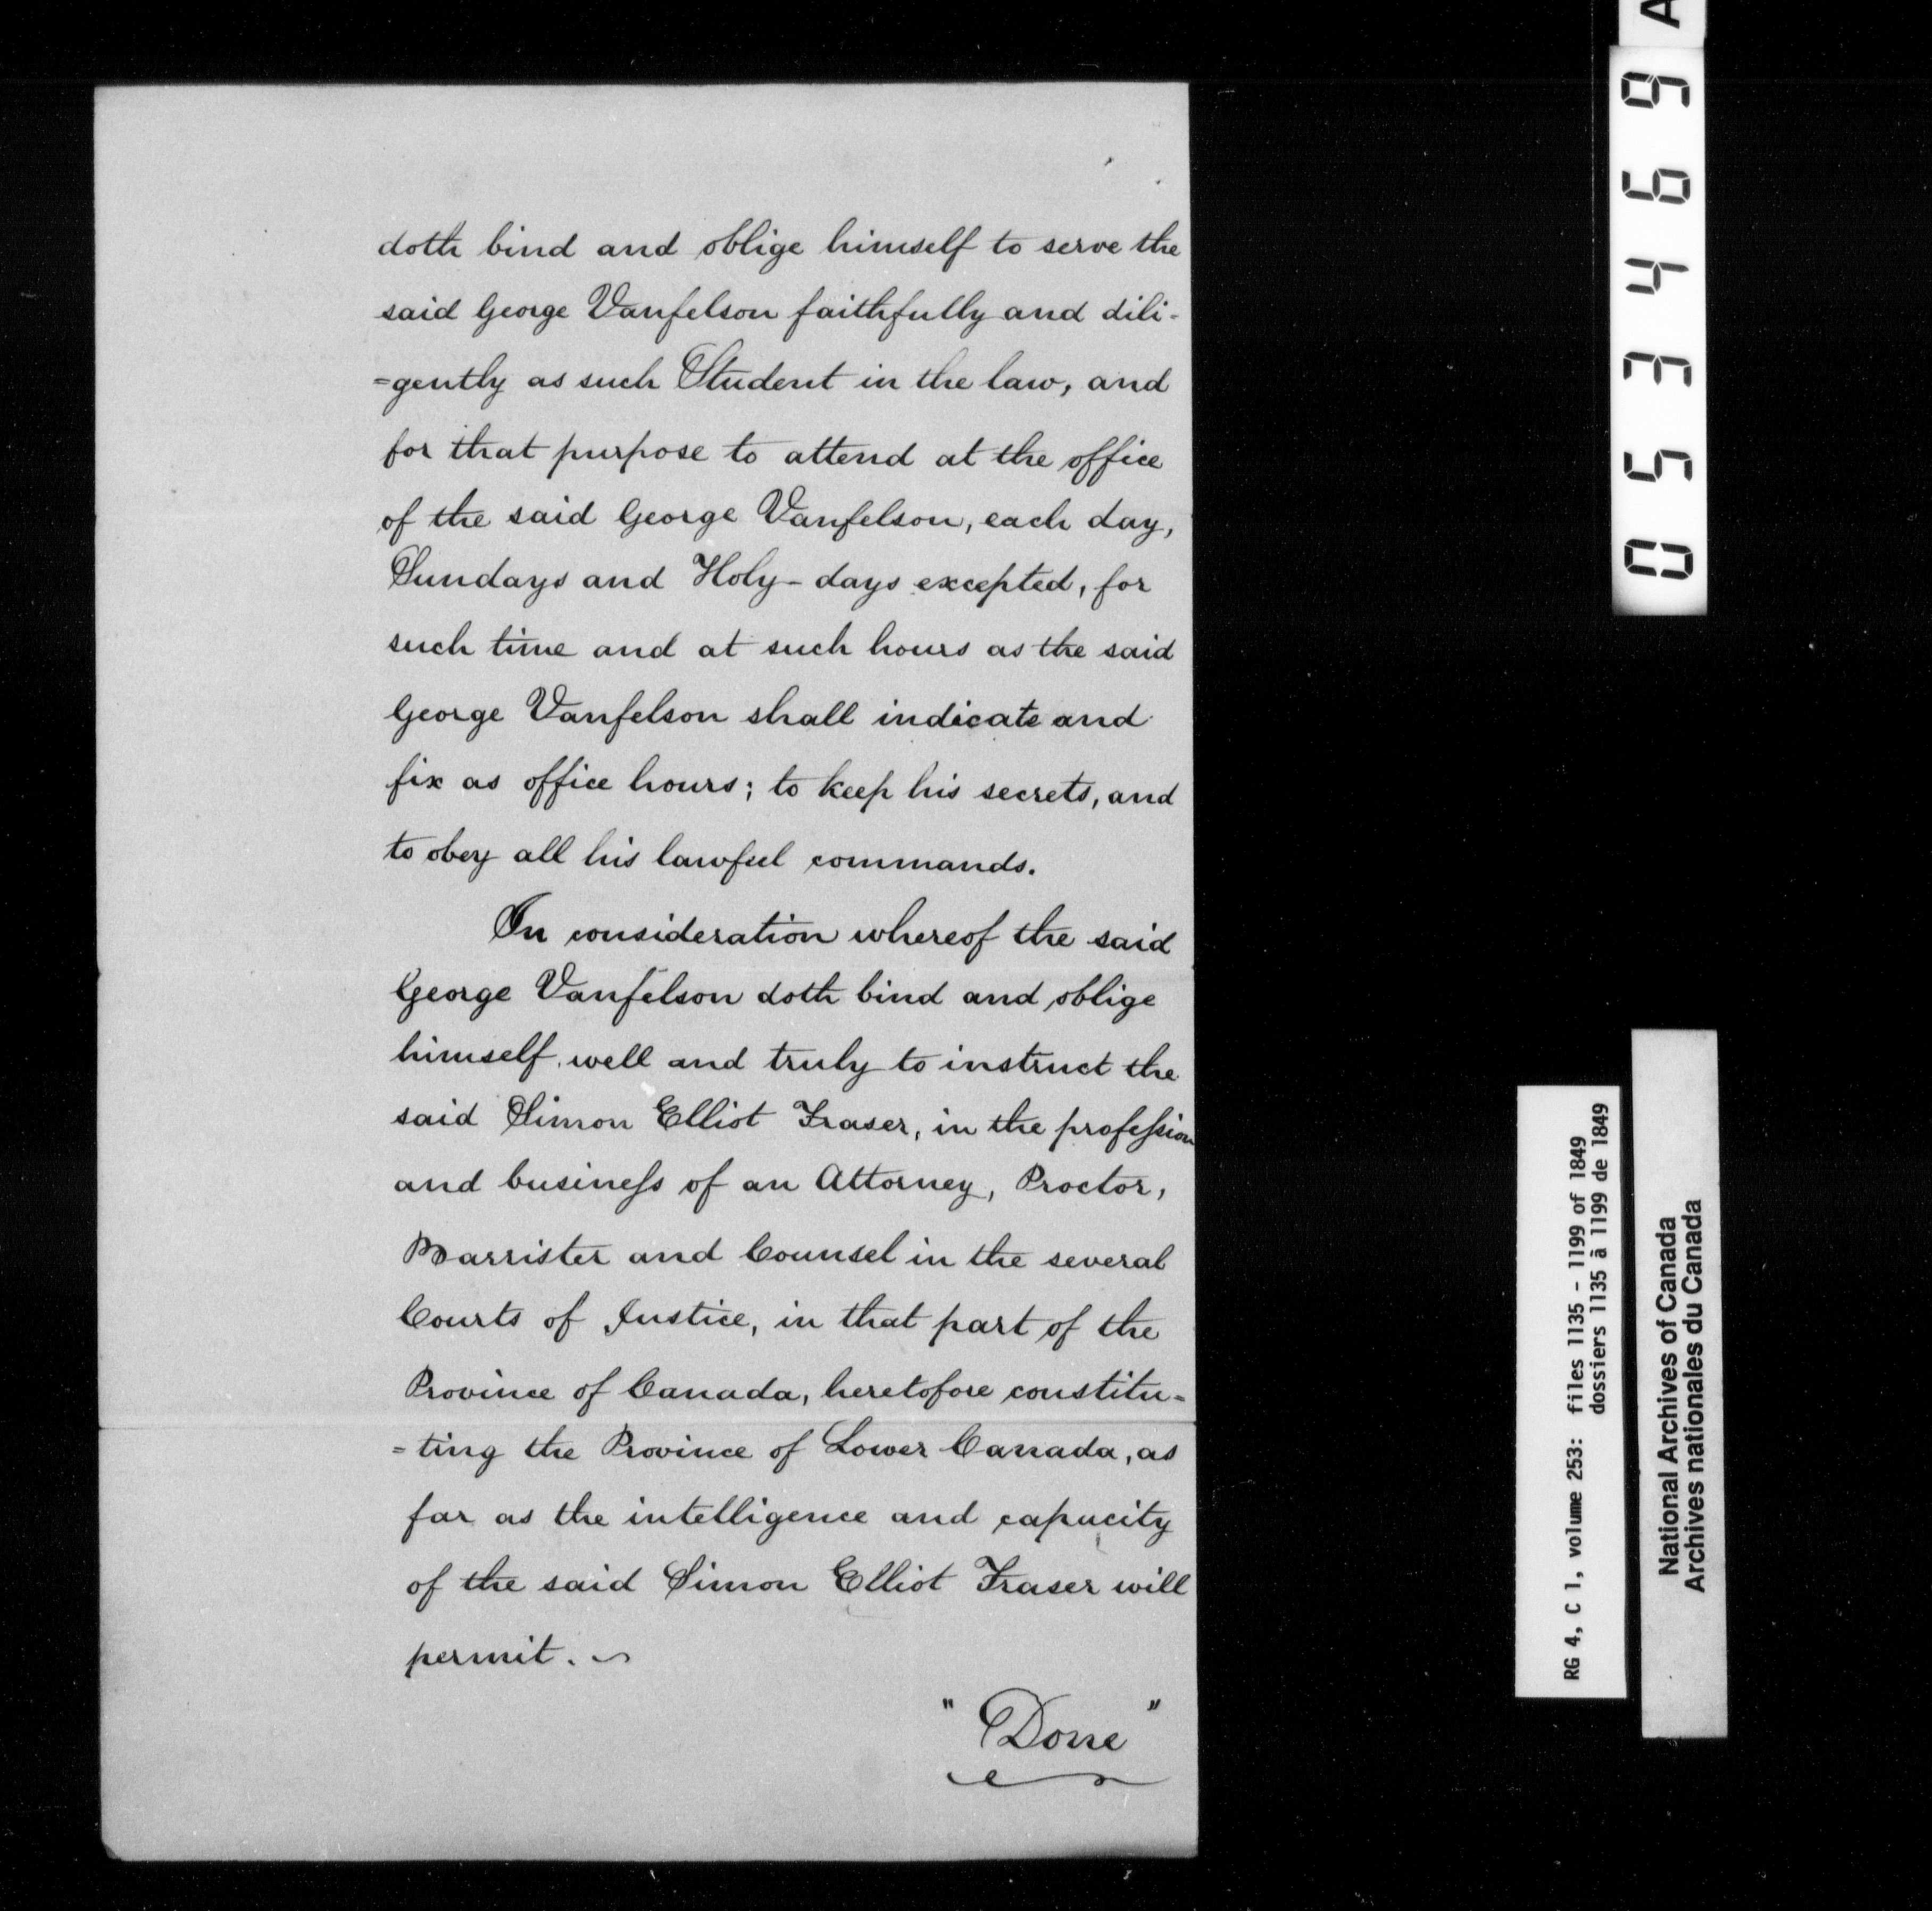 doth bind and oblige himself to serve the
said George Vanfelson faithfully and dili-
=gently as such Student in the law, and
for that purpose to attend at the office
of the said George Vanfelson, each day,
Sundays and Holy-days excepted, for
such time and at such hours as the said
George Vanfelson shall indicate and
fix as office hours; to keep his secrets, and
to obey all his lawful commands.
In consideration whereof the said
George Vanfelson doth bind and oblige
himself well and truly to instruct the
said Simon Elliot Fraser, in the profeſsion
and buſineſs of an Attorney, Proctor,
Barrister and Counsel in the several
Courts of Justice, in that part of the
Province of Canada, heretofore constitu=
=ting the Province of Lower Canada, as
far as the intelligence and capacity
of the said Simon Elliot Fraser will
permit. ~
"Done"
053469 A
RG 4, C 1, volume 253: files 1135 - 1199 of 1849
dossiers 1135 à 1199 de 1849
National Archives of Canada
Archives nationales du Canada